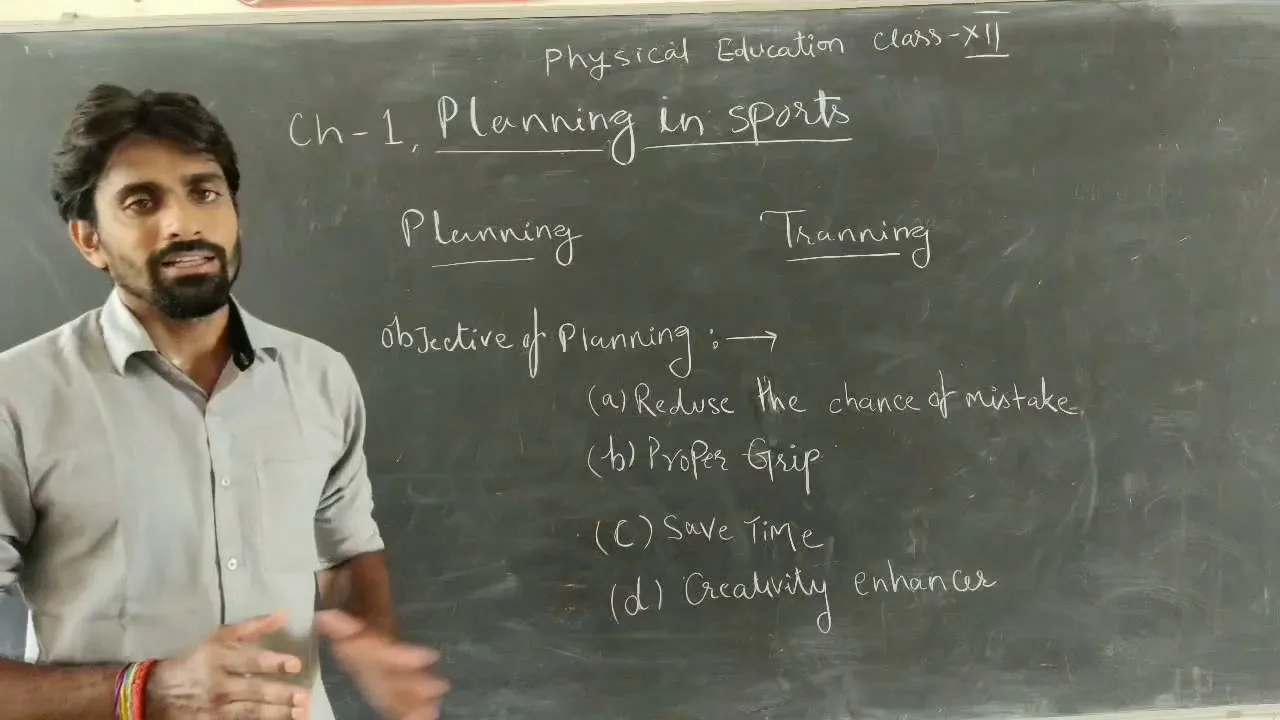 Physical Education Class-XII
Ch-1, Planning in sports
Planning Tranning
Objective of Planning :→
(a) Reduse the chance of mistake
(b) Proper Grip
(c) Save Time
(d) Creativity enhancer